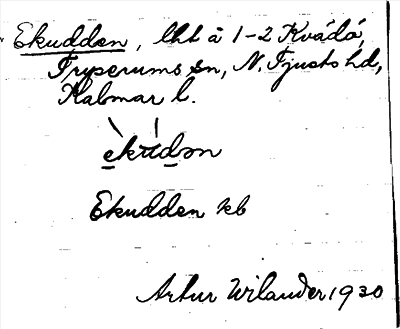 Ekudden, lht å 1-2 Kvädö,
Tryserums sn, N. Tjusts hd,
Kalmar l.
èkúdən
Ekudden kb
Artur Wilander 1930